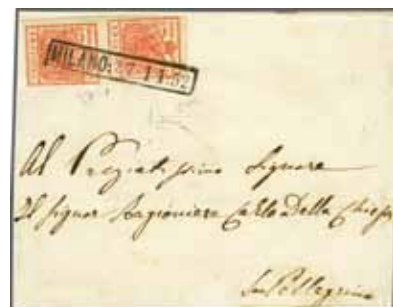 MILANO
Al Pregiatissimo Signore
Il Signor Ragioniere Carlo Della Chiesa
San Pellegrino